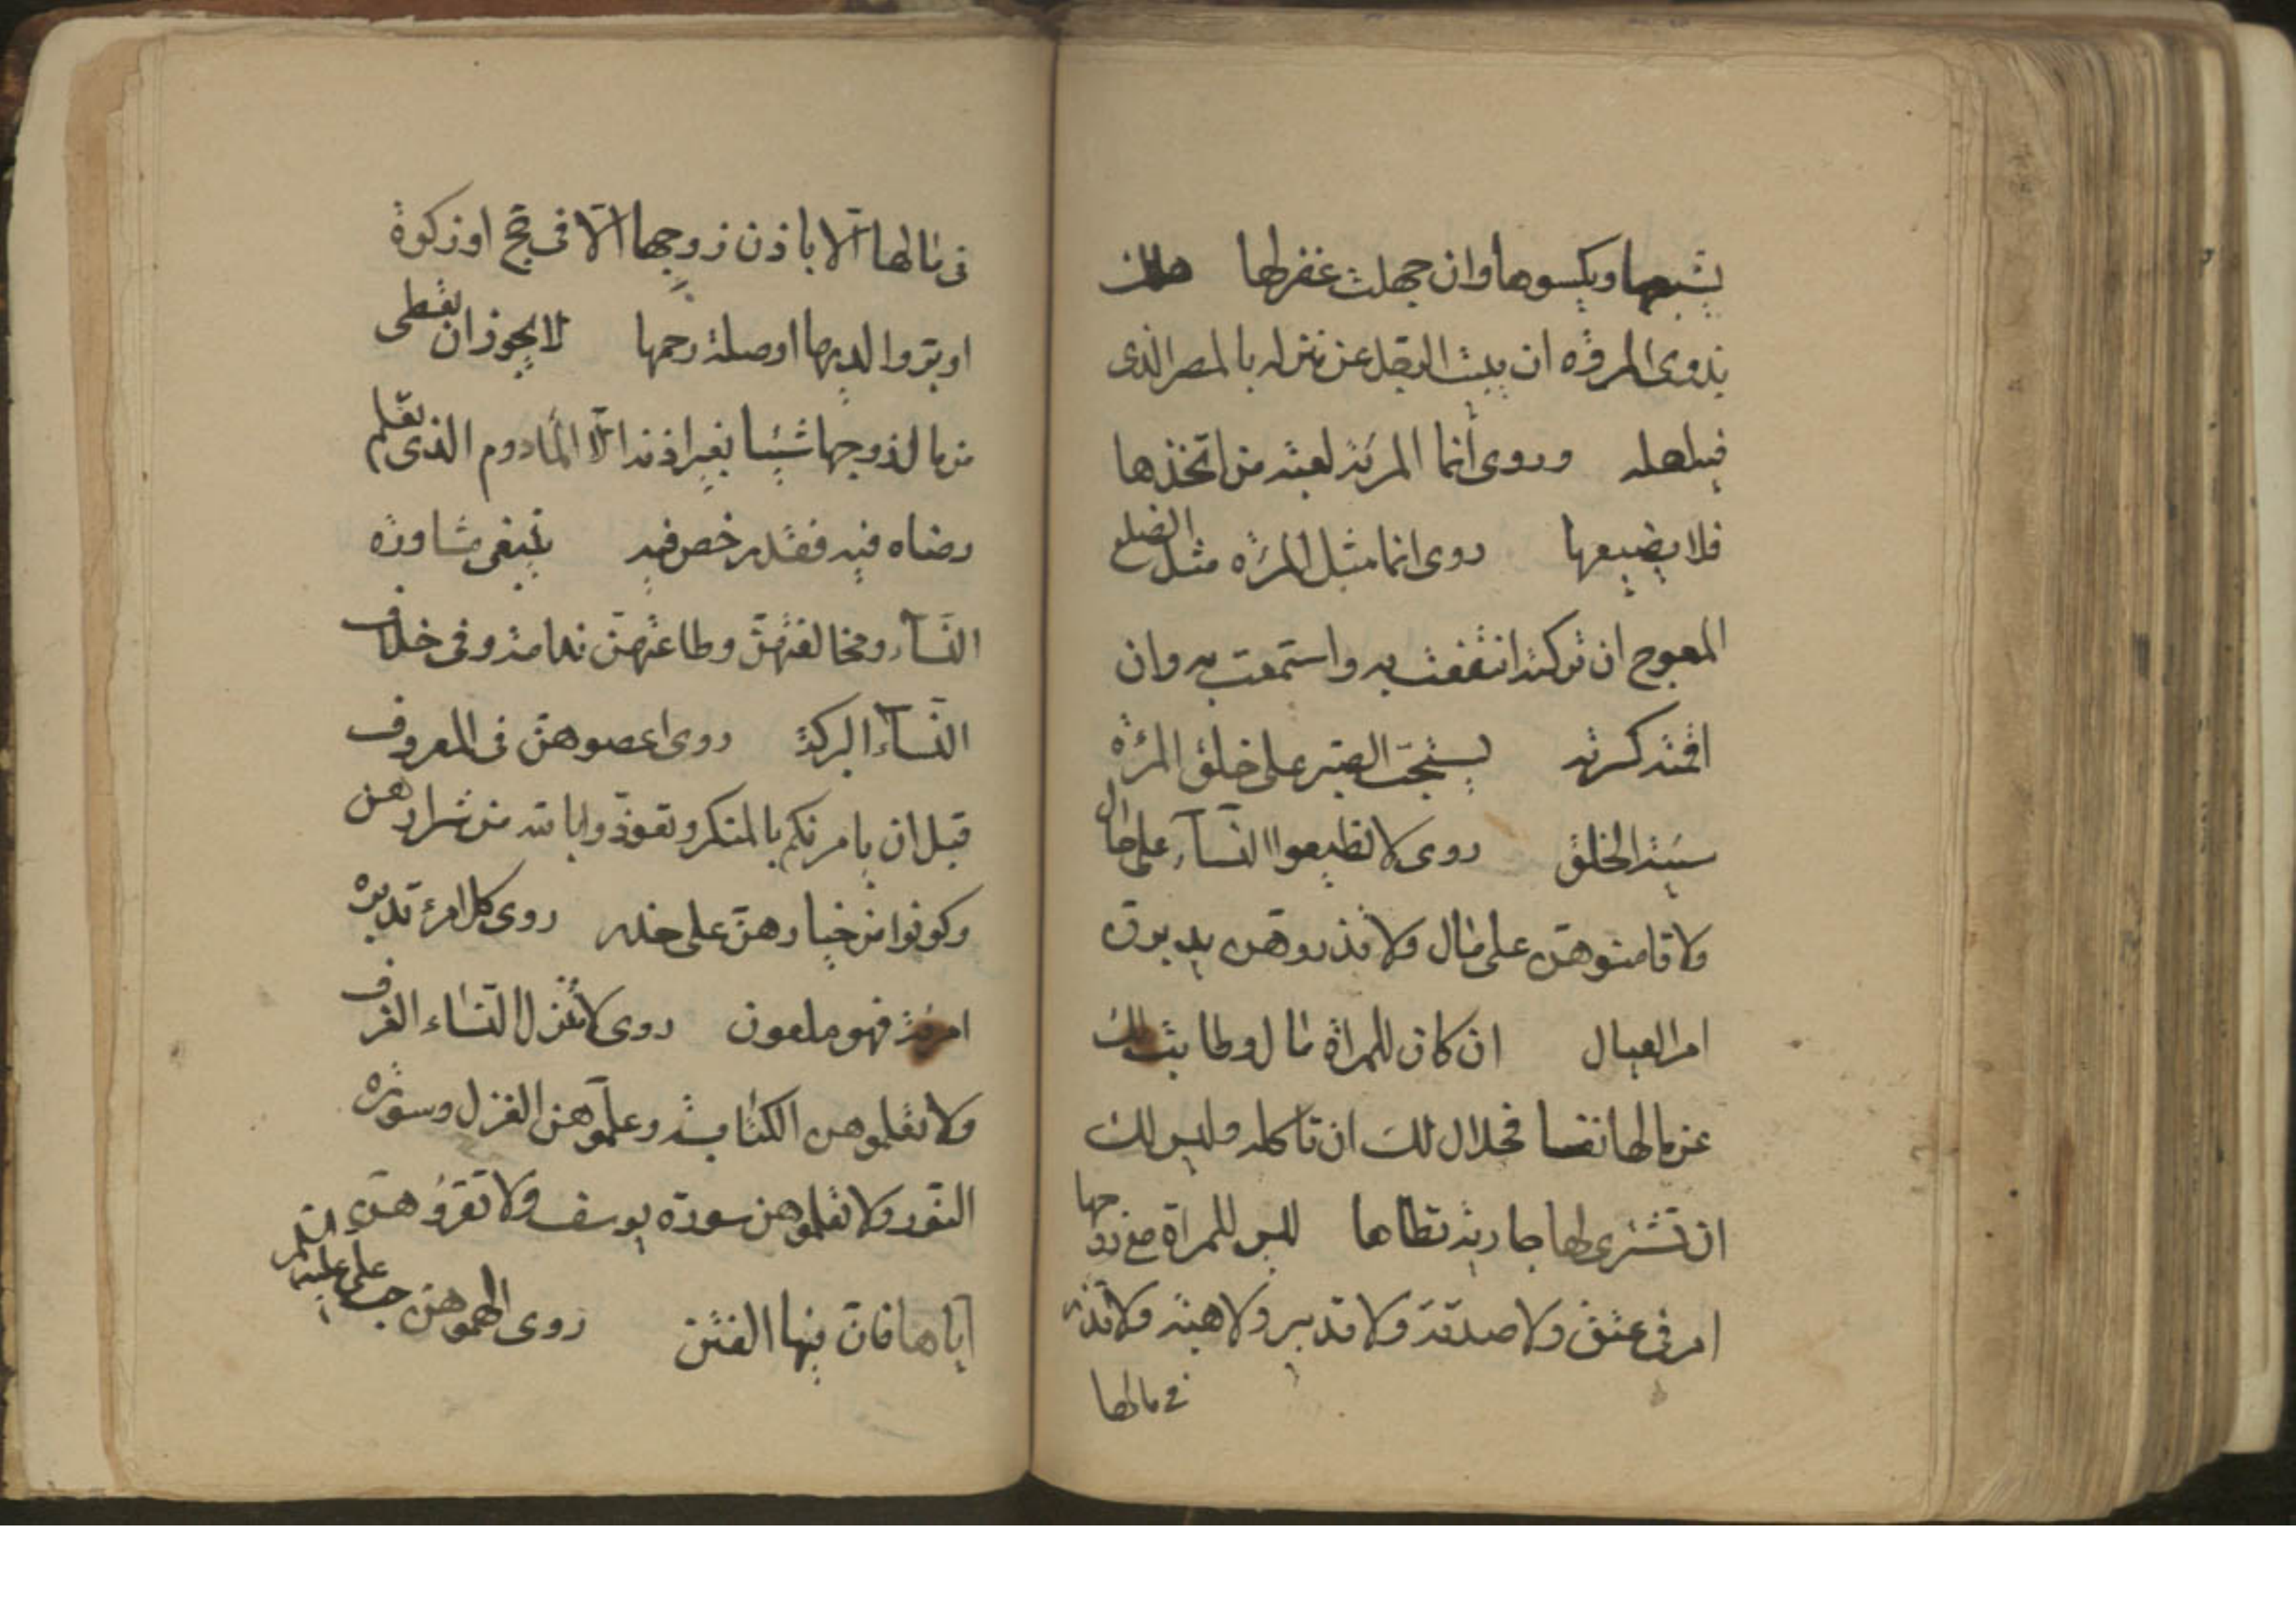 يشبعها ويكسوها وان جهلت غفر لها هلك
بذوي المروة ان يبيت الرجل عن منزله بالمصر الذي
فيه اهله وروى انما المرئة لعبة من اتخذها
فلا يضيعها روى انما مثل المرئه مثل الضلع
المعوج ان تركته انتفعت به واستمتعت به وان
اقمته كسرته يستحب الصبر على خلق المرئة
سيئة الخلق روى لا تطيعوا النسآء على حال
ولا تامنوهن على مال ولا تذروهن يدبرن
امر العيال ان كان للمراة مال وطابت لك
عن مالها نفسا فحلال لك ان تاكله وليس لك
ان تشترى لها جارية تطاها لليس للمراة مع زوجها
امر في عتق ولا صدقة ولا تدبير ولا هبة ولا نذر
في مالها
في مالها الا باذن زوجها الا في حج او زكوة
او بر والديها او صلة رحمها لا يجوز ان تعطى
من مال زوجها شيئا بغير اذنه الا المادوم الذي تعلم
رضاه فيه فقد رخص فيه ينبغى مشاورة
النسآء ومخالفتهن وطاعتهن ندامة وفى خلاف
النسآء البركة روى اعصوهن في المعروف
قبل ان يامرنكم بالمنكر وتعوذوا بالله من شرارهن
وكونوا من خيارهن على حذر روى كل امرء تدبره
امرئة فهو ملعون روى لا تنزل النساء الغرف
ولا تعلموهن الكتابة وعلموهن الغزل وسورة
النور ولا تعلموهن سورة يوسف ولا تقرؤهن
اياها فان فيها الفتن روى الهموهن حب على عليه السلم